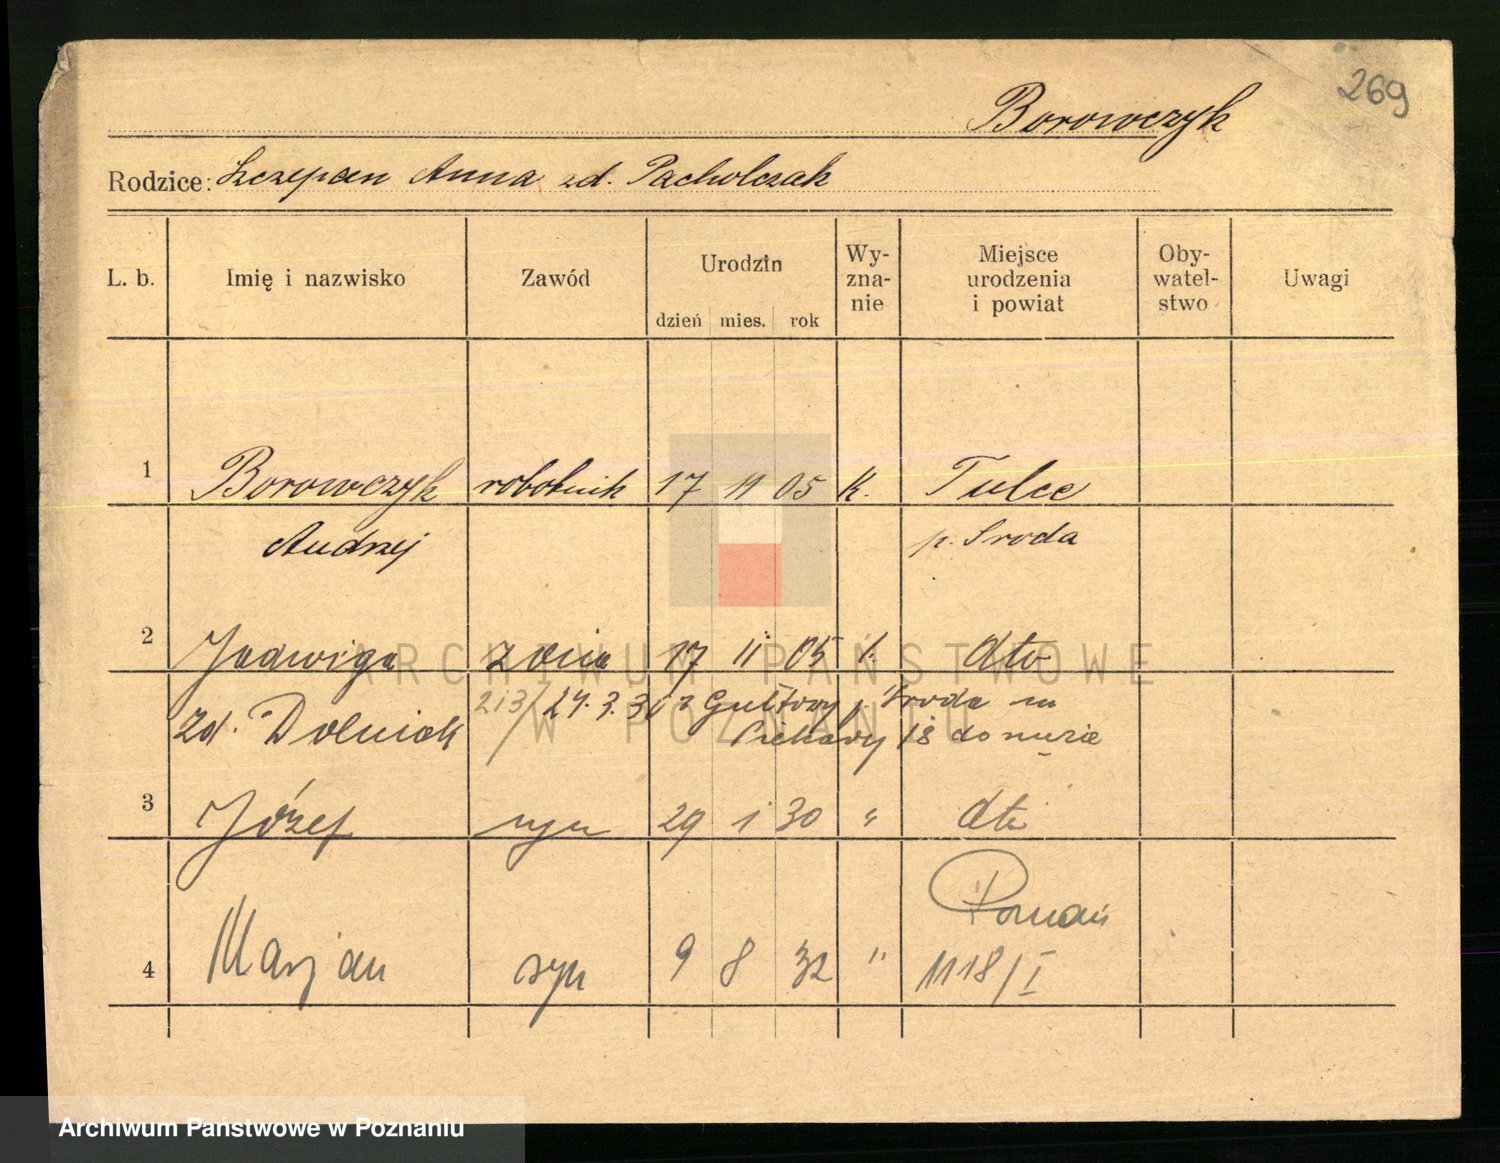 269
Borowczyk
Rodzice: Szczepan Anna zd. Pacholczak
L. b. Imię i nazwisko Zawód Urodzin dzień mies. rok Wy-zna-nie Miejsce urodzenia i powiat Oby-watel-stwo Uwagi
1 Borowczyk robotnik 17 11 05 k. Tulce
Andrzej p. Sroda
2 Jadwiga żona 17 11 05 k. dto
zd. Dolniak 213/24.3.31 z Gułtowy p. Środa na
Piekary 18 do męża
3 Józef syn 29 1 30 " dto
Poznań
4 Marjan syn 9 8 32 " 1118/I
ARCHIWUM PAŃSTWOWE
W POZNANIU
Archiwum Państwowe w Poznaniu